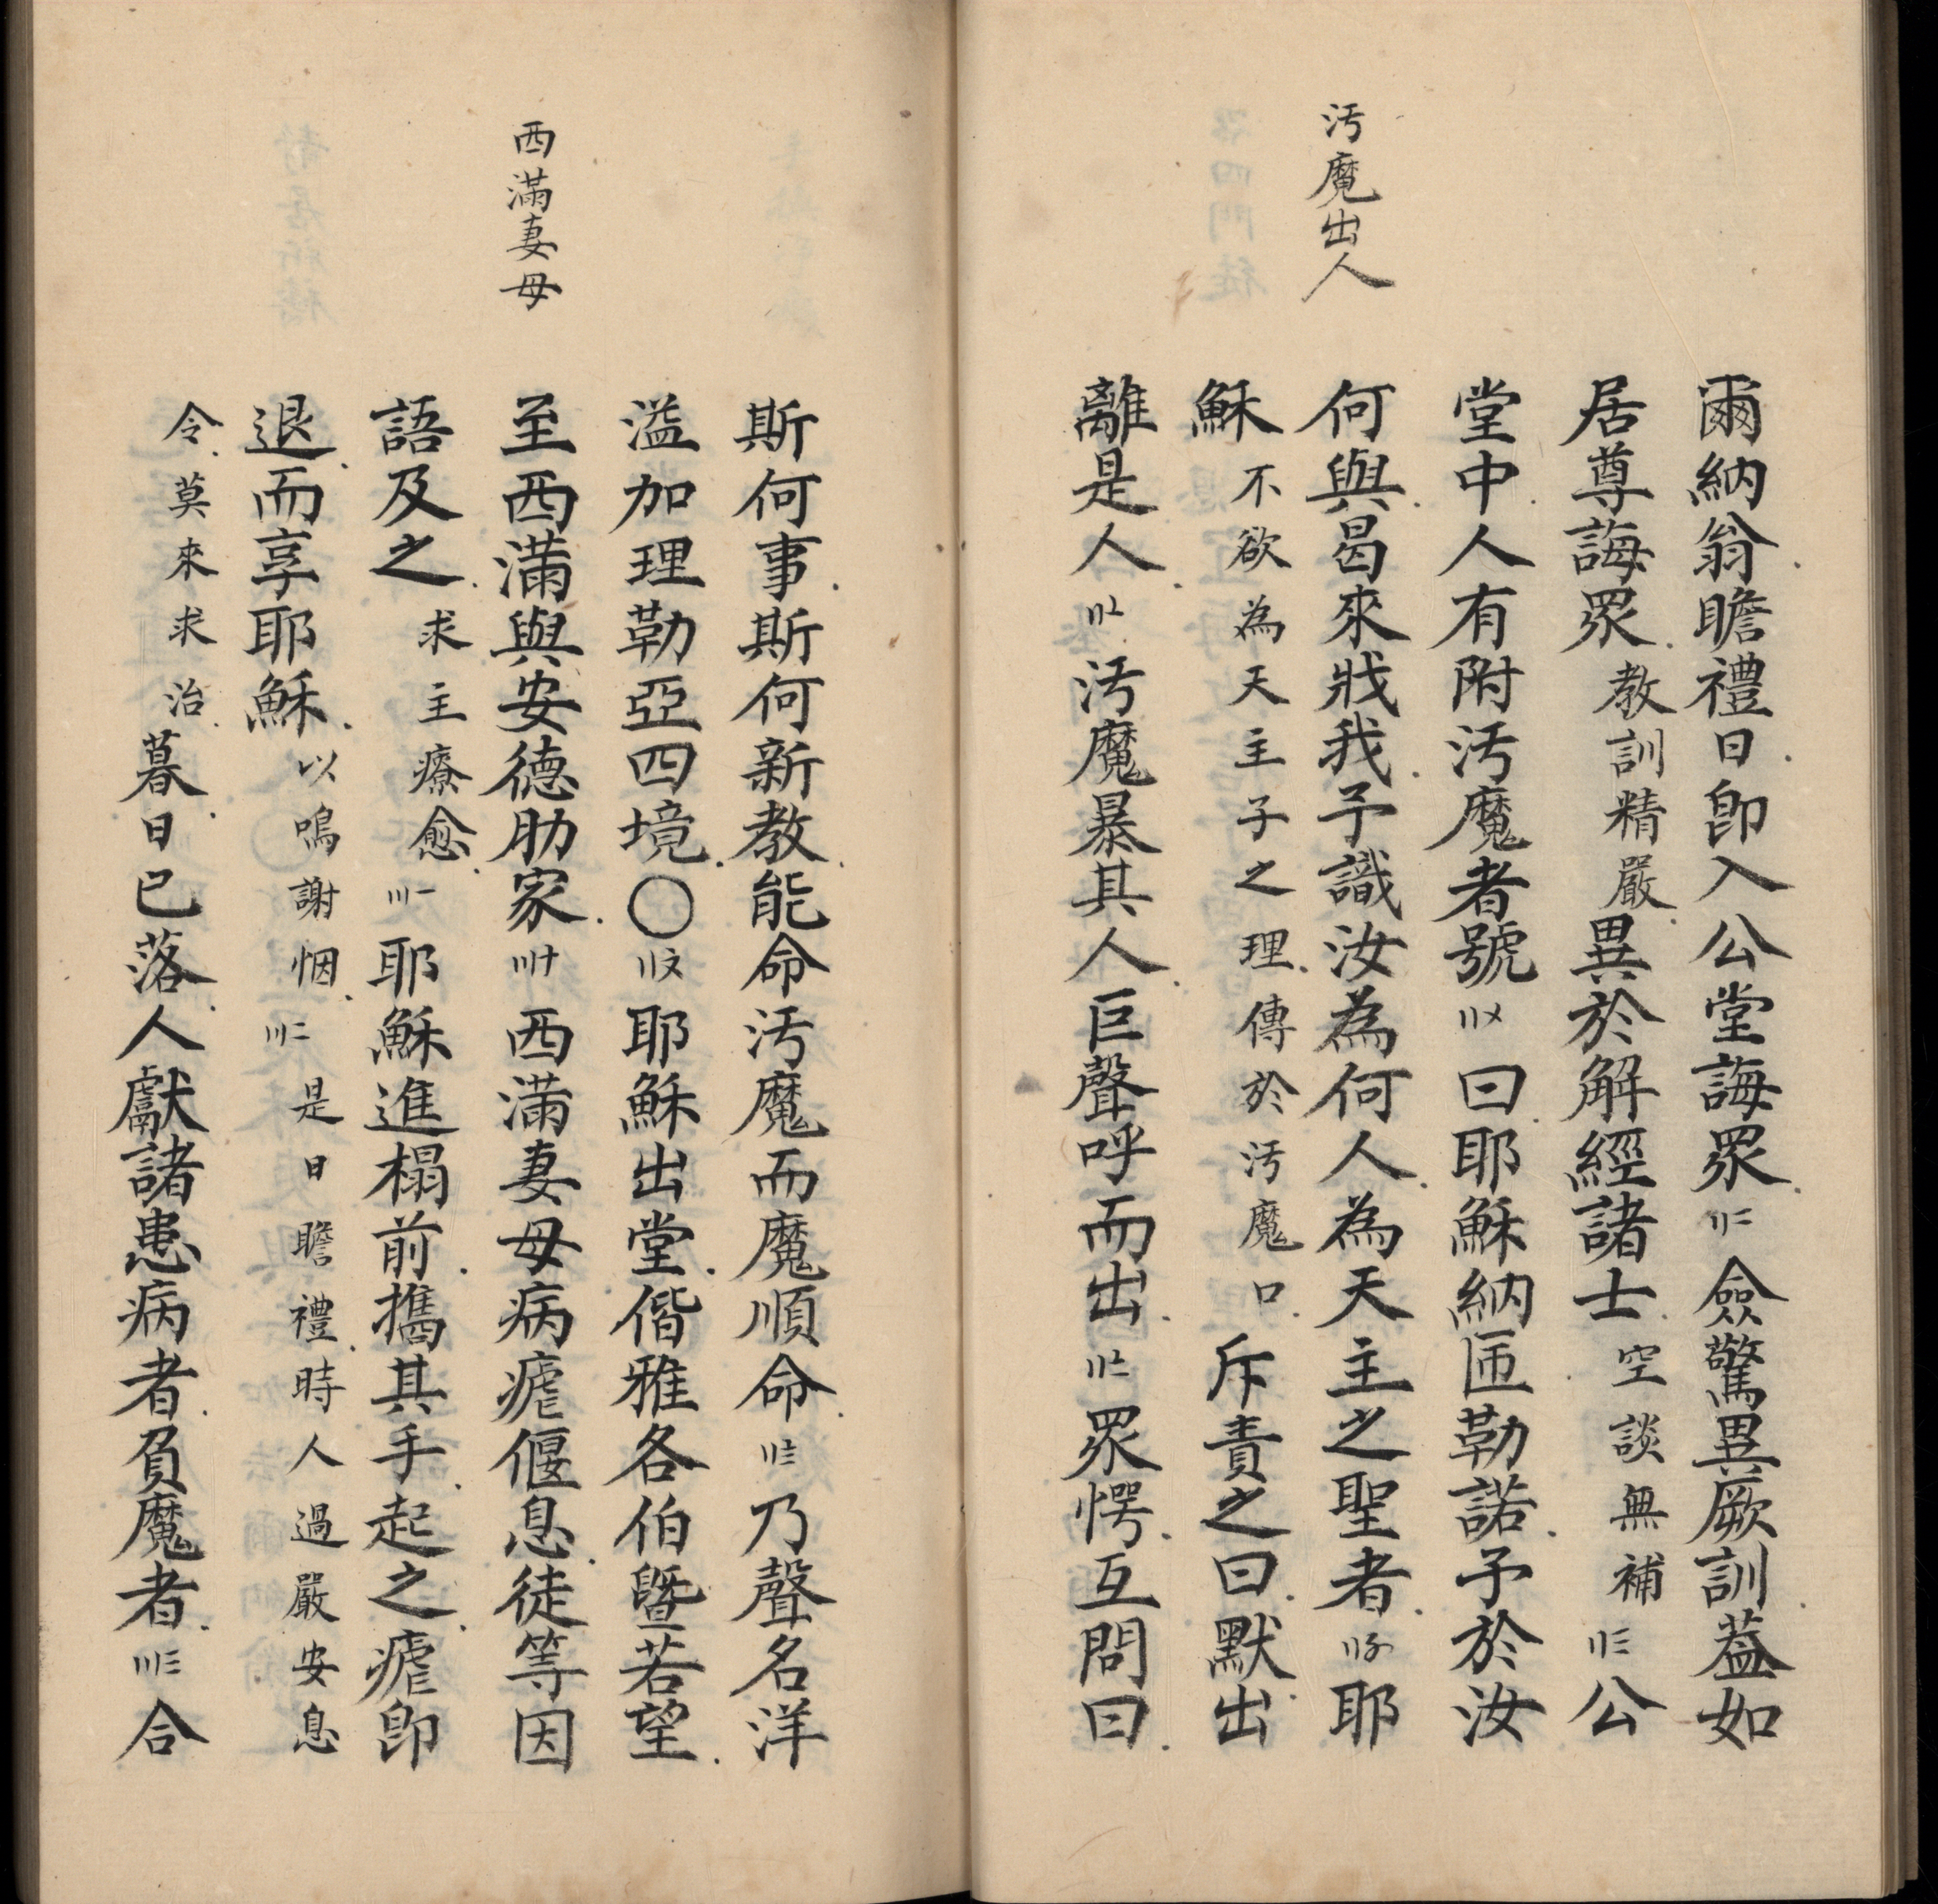 汚魔出人
爾納翁瞻禮日即入公堂誨眾〢二僉驚異厥訓葢如
居尊誨眾教訓精嚴異於解經諸士空談無補〢三公
堂中人有附汚魔者號〢〤曰耶穌納匝勒諾予於汝
何與曷來戕我予識汝為何人為天主之聖者〢〥耶
穌不欲為天主子之理傳於汚魔口斥責之曰默出
離是人〢〦汚魔暴其人巨聲呼而出〢〧眾愕互問曰
西滿妻母
斯何事斯何新教能命汚魔而魔順命〢〨乃聲名洋
溢加理勒亞四境〇〢〩耶穌出堂偕雅各伯曁若望
至西滿與安德肋家〣十西滿妻母病瘧偃息徒等因
語及之求主療愈〣一耶穌進榻前攜其手起之瘧即
退而享耶穌以鳴謝恩〣二是日瞻禮時人過嚴安息
令莫來求治暮日已落人獻諸患病者負魔者〣三合